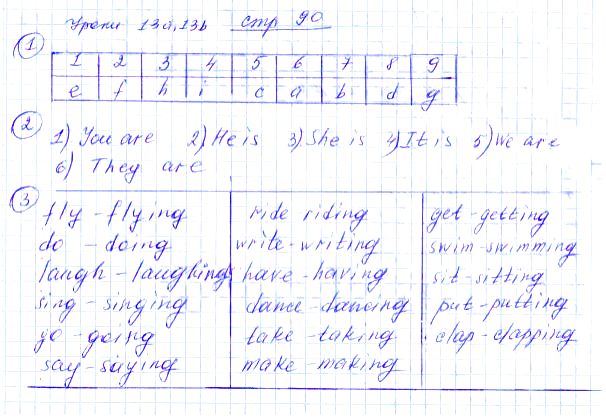 Уроки 13a, 13b стр 90
1
1 2 3 4 5 6 7 8 9
e f h i c a b d g
2
1) You are 2) He is 3) She is 4) It is 5) We are
6) They are
3
fly - flying ride riding get - getting
do - doing write - writing swim - swimming
laugh - laughing have - having sit - sitting
sing - singing dance - dancing put - putting
go - going take - taking clap - clapping
say - saying make - making